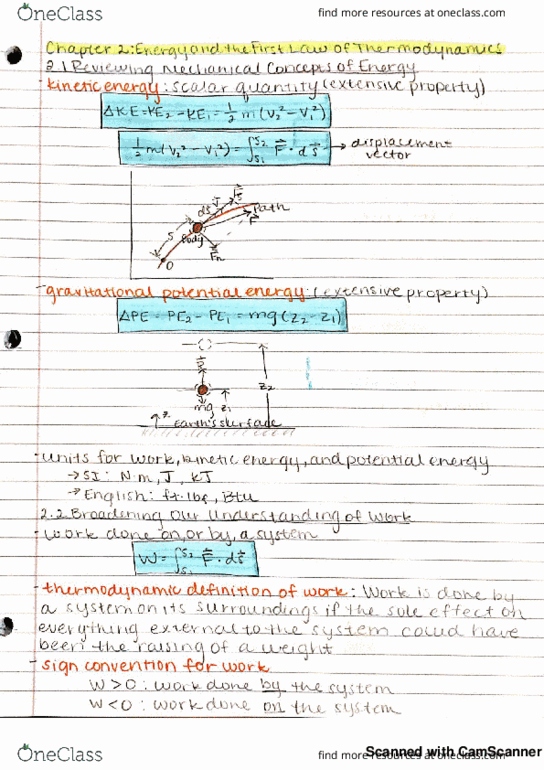 OneClass
find more resources at oneclass.com
Chapter 2: Energy and the First Law of Thermodynamics
2.1 Reviewing Mechanical Concepts of Energy
- kinetic energy: scalar quantity (extensive property)
ΔKE = KE₂ - KE₁ = ½ m (V₂² - V₁²)
½ m (V₂² - V₁²) = ∫_{S₁}^{S₂} F⃗ · ds⃗ → displacement
vector
ds V⃗ Fs
Path
S F⃗
Body
Fn
0
- gravitational potential energy: (extensive property)
ΔPE = PE₂ - PE₁ = mg (Z₂ - Z₁)
Z₂
mg Z₁
Z earth's surface
- units for work, kinetic energy, and potential energy
→ SI: N·m, J, kJ
→ English: ft·lbf, Btu
2.2 Broadening Our Understanding of Work
- work done on, or by, a system
W = ∫_{S₁}^{S₂} F⃗ · ds⃗
- thermodynamic definition of work: Work is done by
a system on its surroundings if the sole effect on
everything external to the system could have
been the raising of a weight
- sign convention for work
W > 0 : work done by the system
W < 0 : work done on the system
OneClass
find more resources at oneclass.com
Scanned with CamScanner